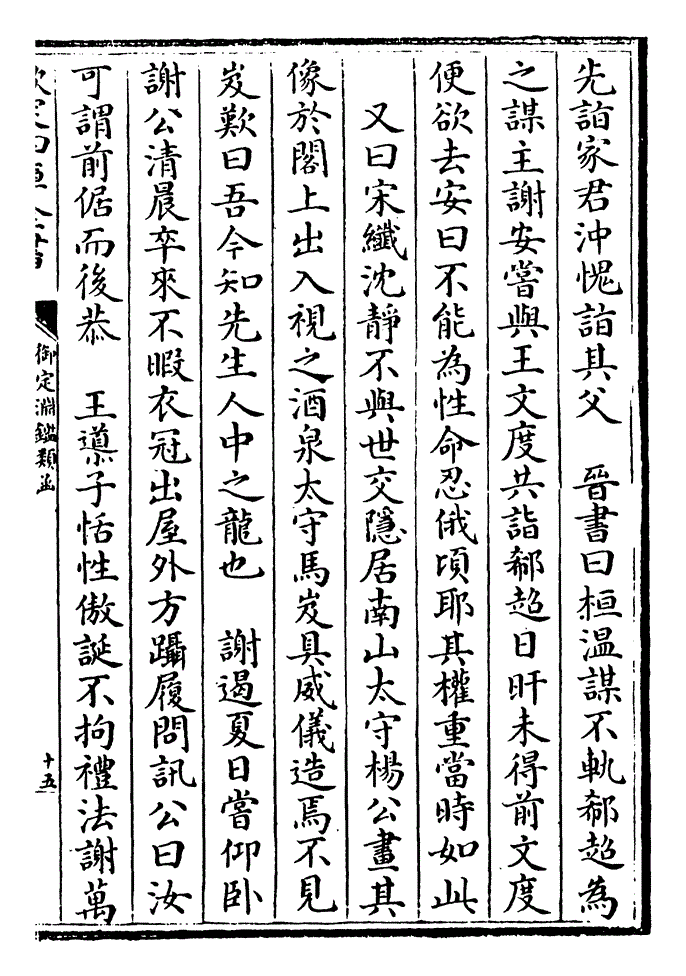 先詣家君沖愧詣其父　晉書曰桓溫謀不軌郗超為
之謀主謝安嘗與王文度共詣郗超日旰未得前文度
便欲去安曰不能為性命忍俄頃耶其權重當時如此
又曰宋纖沈靜不與世交隱居南山太守楊公畫其
像於閣上出入視之酒泉太守馬岌具威儀造焉不見
岌歎曰吾今知先生人中之龍也　謝遏夏日嘗仰卧
謝公清晨卒來不暇衣冠出屋外方躡履問訊公曰汝
可謂前倨而後恭　王導子恬性傲誕不拘禮法謝萬
御定淵鑑類函
十五